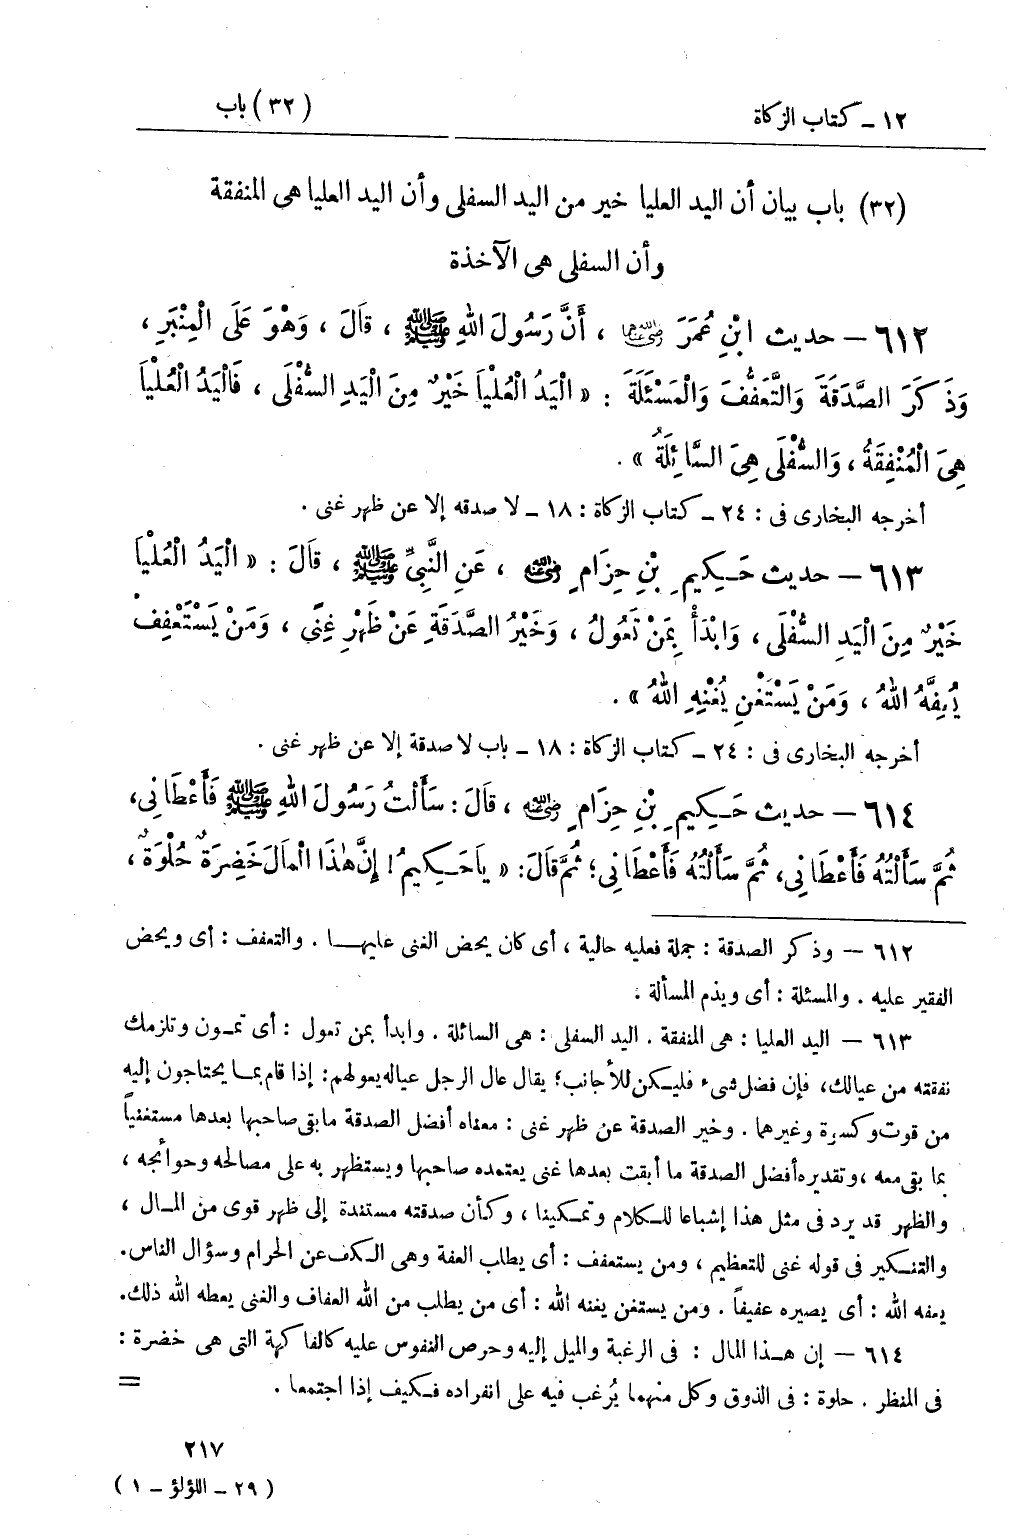 ١٢ ــ كتاب الزكاة
(٣٢) باب
(٣٢) باب بيان أن اليد العليا خير من اليد السفلى وأن اليد العليا هى المنفقة
وأن السفلى هى الآخذة
٦١٢ – حديث ابْنِ عُمَرَ رضي الله عنهما ، أَنَّ رَسُولَ اللهِ ﷺ ، قَالَ ، وَهْوَ عَلَى الْمِنْبَرِ ،
وَذَ كَرَ الصَّدَقَةَ وَالتَّعَفُّفَ وَالْمَسْئَلَةَ : « الْيَدُ الْعُلْيَا خَيْرٌ مِنَ الْيَدِ السُّفْلَى ، فَالْيَدُ الْعُلْيَا
هِىَ الْمُنْفِقَةُ ، وَالسُّفْلَى هِىَ السَّائِلَةُ » .
أخرجه البخارى فى : ٢٤ ــ كتاب الزكاة : ١٨ ــ لا صدقه إلا عن ظهر غنى .
٦١٣ – حديث حَكِيمِ بْنِ حِزَامٍ رضي الله عنه ، عَنِ النَّبِيِّ ﷺ ، قَالَ : « الْيَدُ الْعُلْيَا
خَيْرٌ مِنَ الْيَدِ السُّفْلَى ، وَابْدَأْ بِمَنْ تَعُولُ ، وَخَيْرُ الصَّدَقَةِ عَنْ ظَهْرِ غِنًى ، وَمَنْ يَسْتَعْفِفْ
يُعِفَّهُ اللهُ ، وَمَنْ يَسْتَغْنِ يُغْنِهِ اللهُ » .
أخرجه البخارى فى : ٢٤ ــ كتاب الزكاة : ١٨ ــ باب لا صدقة إلا عن ظهر غنى .
٦١٤ – حديث حَكِيمِ بْنِ حِزَامٍ رضي الله عنه ، قَالَ : سَأَلْتُ رَسُولَ اللهِ ﷺ فَأَعْطَانِى ،
ثُمَّ سَأَلْتُهُ فَأَعْطَانِى ، ثُمَّ سَأَلْتُهُ فَأَعْطَانِى ؛ ثُمَّ قَالَ : « يَا حَكِيمُ ! إِنَّ هٰذَا الْمَالَ خَضِرَةٌ حُلْوَةٌ ،
٦١٢ — وذكر الصدقة : جملة فعليه حالية ، أى كان يحض الغنى عليها . والتعفف : أى ويحض
الفقير عليه . والمسئلة : أى ويذم المسألة .
٦١٣ — اليد العليا : هى المنفقة . اليد السفلى : هى السائلة . وابدأ بمن تعول : أى تمون وتلزمك
نفقته من عيالك، فإن فضل شىء فليكن للأجانب؛ يقال عال الرجل عياله يعولهم: إذا قام بما يحتاجون إليه
من قوت وكسوة وغيرهما . وخير الصدقة عن ظهر غنى : معناه أفضل الصدقة ما بقى صاحبها بعدها مستغنياً
بما بقى معه ، وتقديره أفضل الصدقة ما أبقت بعدها غنى يعتمده صاحبها ويستظهر به على مصالحه وحوائجه ،
والظهر قد يرد فى مثل هذا إشباعا للكلام وتمكينا ، وكأن صدقته مستندة إلى ظهر قوى من المال ،
والتنكير فى قوله غنى للتعظيم ، ومن يستعفف : أى يطلب العفة وهى الكف عن الحرام وسؤال الناس.
يعفه الله : أى يصيره عفيفاً . ومن يستغن يغنه الله : أى من يطلب من الله العفاف والغنى يعطه الله ذلك.
٦١٤ — إن هذا المال : فى الرغبة والميل إليه وحرص النفوس عليه كالفاكهة التى هى خضرة :
فى المنظر . حلوة : فى الذوق وكل منهما يُرغب فيه على انفراده فكيف إذا اجتمعا .
=
٢١٧
( ٢٩ – اللؤلؤ – ١ )